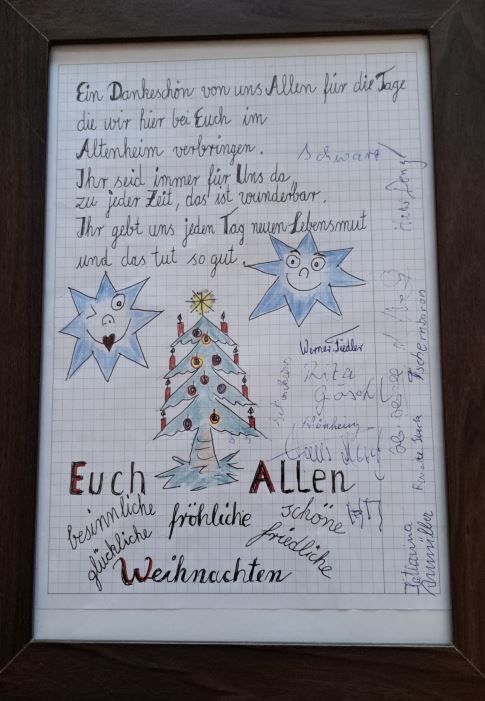 Ein Dankeschön von uns Allen für die Tage
die wir hier bei Euch im
Altenheim verbringen.
Ihr seid immer für Uns da,
zu jeder Zeit, das ist wunderbar.
Ihr gebt uns jeden Tag neuen Lebensmut
und das tut so gut.
Schwarz
Werner Fiedler
Rita
Renate Tschernboron
Euch Allen
besinnliche
glückliche
fröhliche
schöne
friedliche
Weihnachten